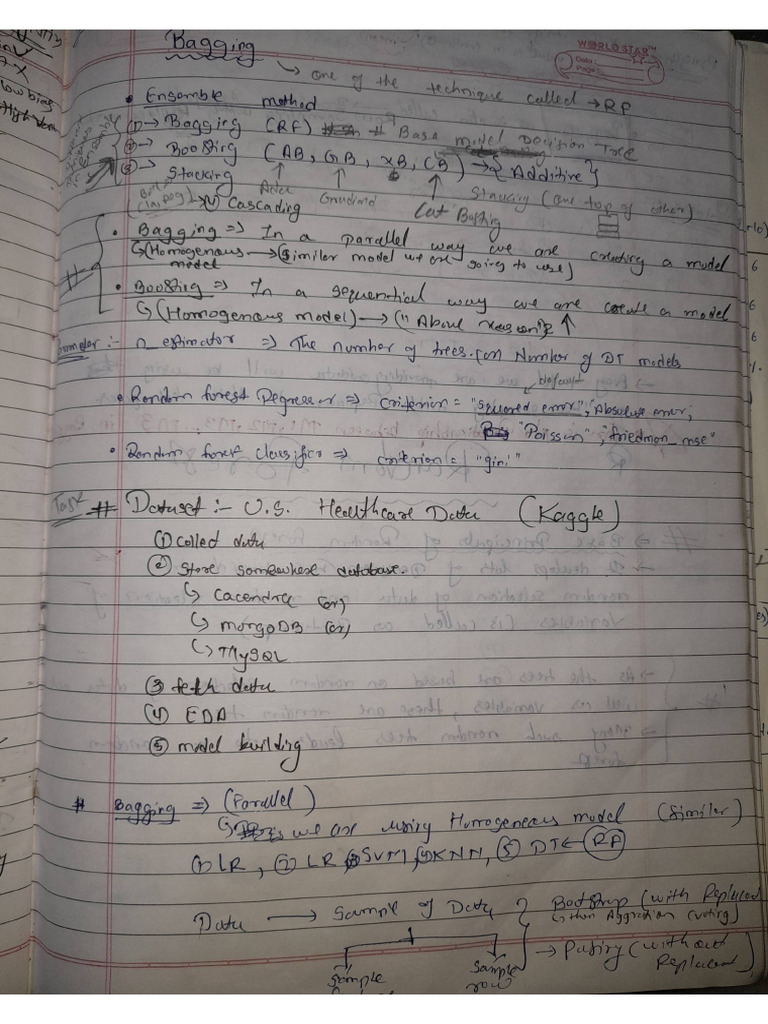 Bagging
WORLD STAR
Date :
Page :
→ One of the technique called → RF
• Ensamble method
(1) → Bagging (RF) # Base model Decision Tree
(2) → Boosting (AB, GB, XB, CB) → {Additive}
(3) → Stacking
Ada
Gradind
Cat Bosting
Stacking (one top of other)
(4) Cascading
• Bagging => In a parallel way we are creating a model
↳ (Homogenous model → (similar model we are going to use)
#
• Boosting => In a sequential way we are create a model
↳ (Homogenous model) → (" Above reason)
:- n_estimator => The number of trees. (or) Number of DT models
default
• Random forest Regressor => criterion = "squared error", Absolute error,
"Poisson", "friedman_mse"
• Random forest classifier => criterion = "gini"
Task # Dataset :- U.S. Healthcare Data (Kaggle)
(1) collect data
(2) store somewhere database.
↳ cacendra (or)
↳ mongoDB (or)
↳ MySQL
(3) feth data
(4) EDA
(5) model building
# Bagging => (Parallel)
↳ we are using Homogeneous model (Similar)
(1) LR, (2) LR (3) SVM, (4) KNN, (5) DT ← RF
Data → Sample of Data { Bootstrap (with Replaced
↳ then Aggration (voting)
→ Pasting (without Replaced)
Sample
Sample row